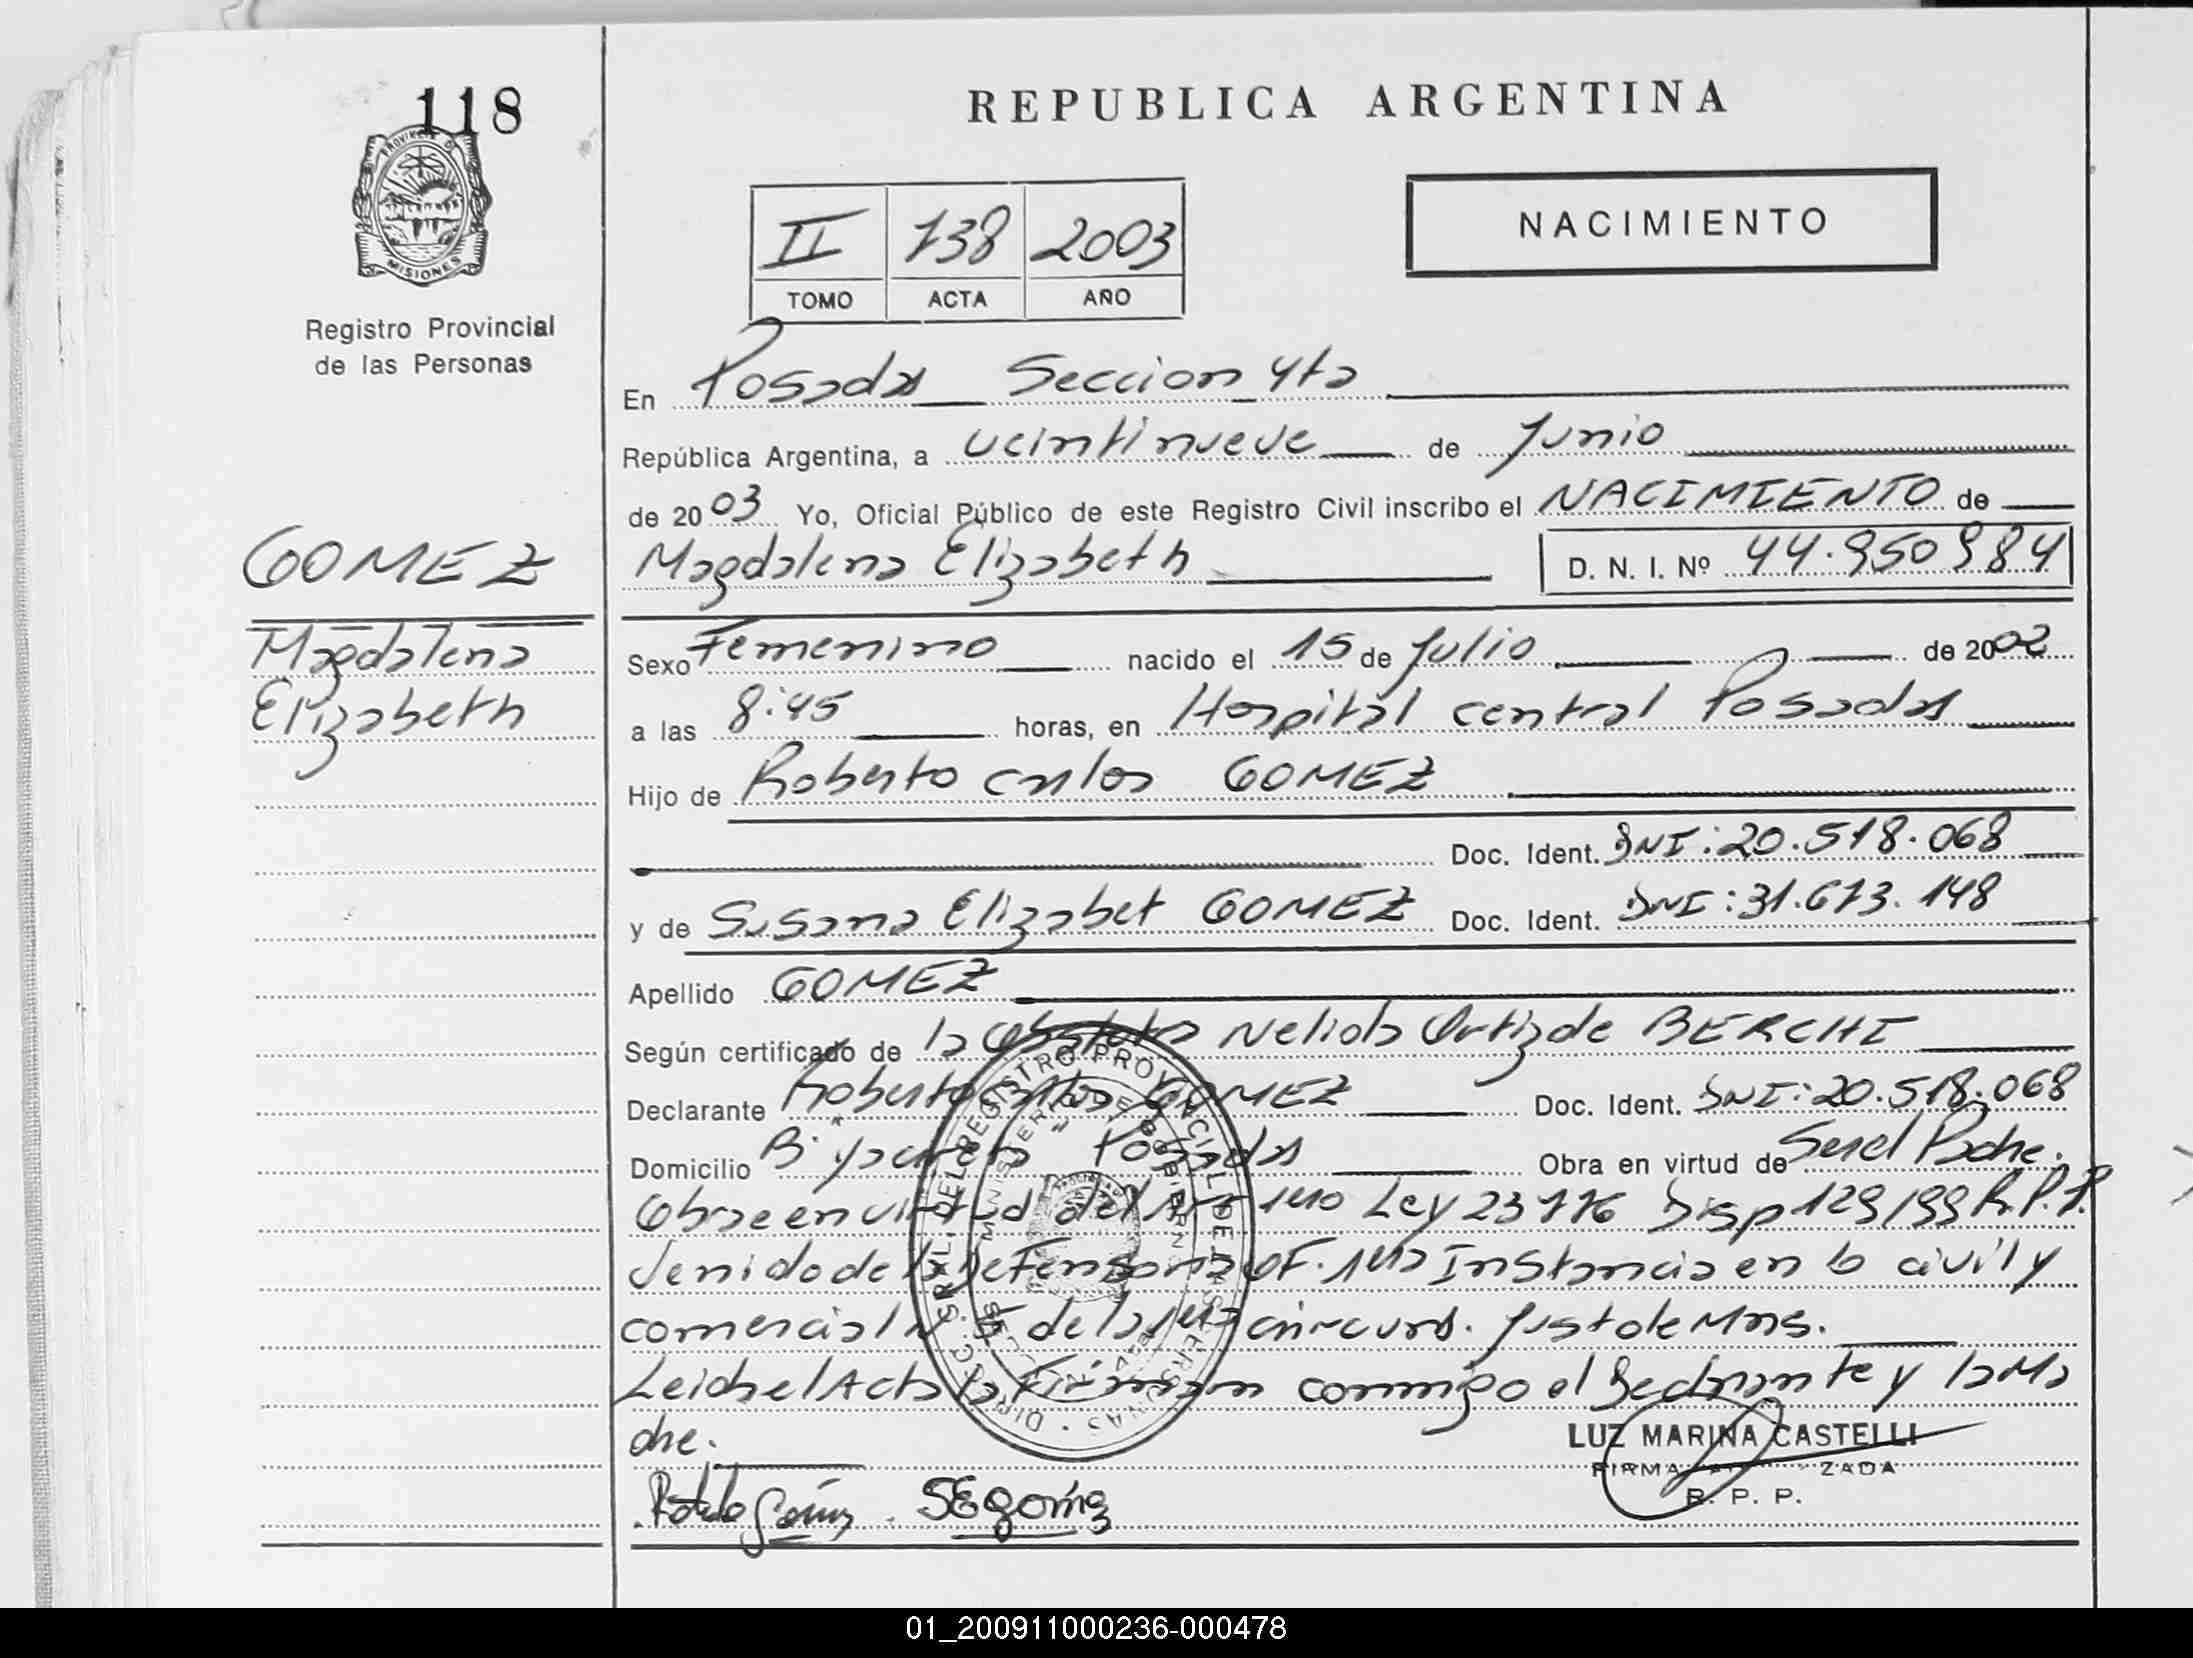 118
PROVINCIA DE
MISIONES
Registro Provincial
de las Personas
GOMEZ
Magdalena
Elizabeth
REPUBLICA ARGENTINA
II 738 2003
TOMO ACTA AÑO
NACIMIENTO
En Posadas Seccion 4ta
República Argentina, a veintinueve de Junio
de 2003 Yo, Oficial Público de este Registro Civil inscribo el NACIMIENTO de
Magdalena Elizabeth D. N. I. Nº 44.950984
Sexo Femenino nacido el 15 de Julio de 2002
a las 8:45 horas, en Hospital central Posadas
Hijo de Roberto Carlos GOMEZ
Doc. Ident. DNI: 20.518.068
y de Susana Elizabet GOMEZ Doc. Ident. DNI: 31.673.148
Apellido GOMEZ
Según certificado de la Obstetra Nelida Ortiz de BERCHI
Declarante Roberto Carlos GOMEZ Doc. Ident. DNI: 20.518.068
Domicilio Bº Yacyreta Posadas Obra en virtud de Ser el Padre.
Obra en virtud del Art 1ro Ley 23776 Disp 129/99 R.P.P.
de la Defensoria OF. 1ra Instancia en lo civil y
comercial Nº de la 1ra circuns. Just de Mnes.
Leida el Acta la Firman conmigo el Declarante y la Ma
dre.
SEgomez
LUZ MARINA CASTELLI
FIRMA AUTORIZADA
R. P. P.
DIRECC. GRAL. DEL REGISTRO PROVINCIAL DE LAS PERSONAS
MINISTERIO DE GOBIERNO
01_200911000236-000478